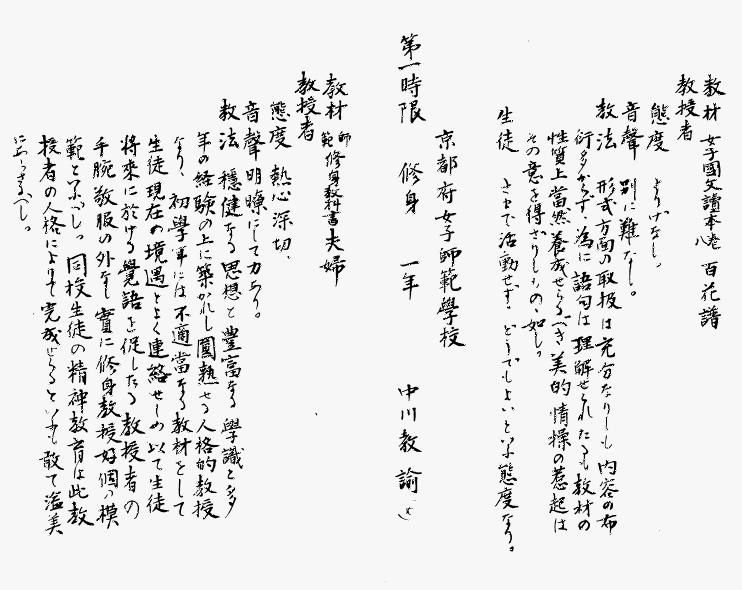 教材 女子國文讀本卷八 百花譜
教授者
態度 よりげなし。
音聲 別に難なし。
教法 形式方面の取扱は充分なりしも内容の布
衍多からず、為に語句は理解せられたるも教材の
性質上當然養成せらるべき美的情操の惹起は
その意を得ざりしものゝ如し。
生徒 さまで活動せず、どうでもよいといふ態度なり。
京都府女子師範學校
第一時限 修身 一年 中川教諭
教材 師範修身教科書 夫婦
教授者
態度 熱心深切、
音聲 明瞭にして力あり。
教法 穏健なる思想と豊富なる學識と多
年の経験の上に築かれし圓熟せる人格的教授
なり、初學年には不適當なる教材をして
生徒現在の境遇とよく連絡せしめ以て生徒
将來に於ける覺語を促したる教授者の
手腕敬服の外なし實に修身教授好個の模
範と云ふべし。同校生徒の精神教育は此教
授者の人格によりて完成せらるといふも敢て溢美
にあらざるべし。